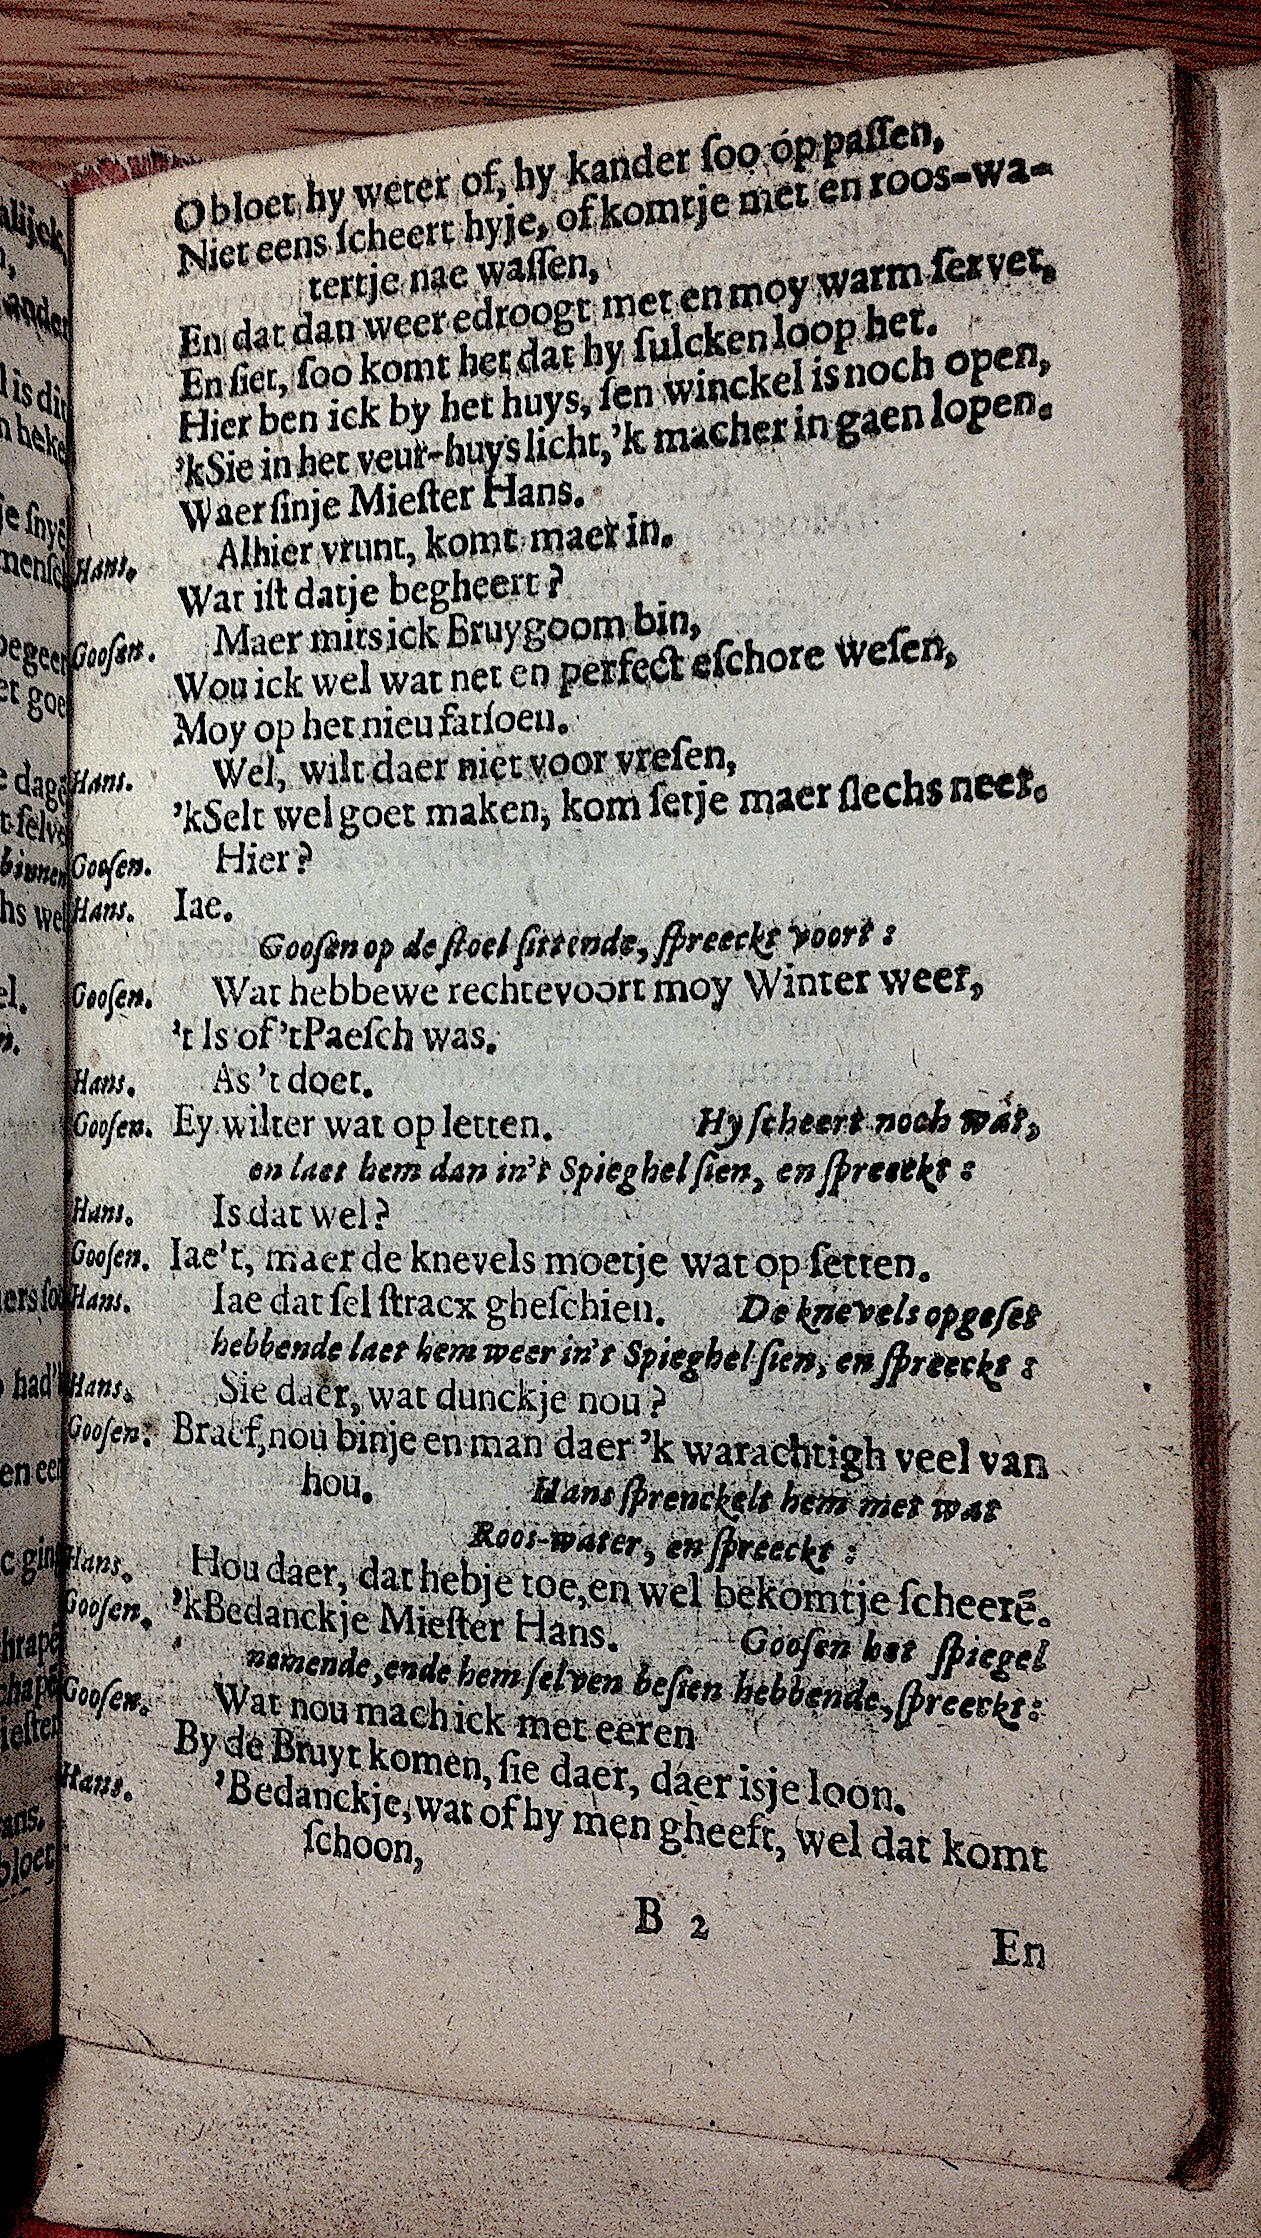 O bloet hy weter of, hy kander ſoo op paſſen,
Niet eens ſcheert hyje, of komtje met en roos-wa-
tertje nae waſſen,
En dat dan weer edroogt met en moy warm ſervet,
En ſiet, ſoo komt het dat hy ſulcken loop het.
Hier ben ick by het huys, ſen winckel is noch open,
'kSie in het veur-huys licht, 'k macher in gaen lopen.
Waer ſinje Mieſter Hans.
Hans. Alhier vrunt, komt maer in.
Wat iſt datje begheert?
Gooſen. Maer mits ick Bruygoom bin,
Wou ick wel wat net en perfect eſchore weſen,
Moy op het nieu fatſoen.
Hans. Wel, wilt daer niet voor vreſen,
'kSelt wel goet maken, kom ſetje maer ſlechs neer.
Gooſen. Hier?
Hans. Iae.
Gooſen op de ſtoel ſittende, ſpreeckt voort:
Gooſen. Wat hebbewe rechtevoort moy Winter weer,
't Is of 'tPaeſch was.
Hans. As 't doet.
Gooſen. Ey wilter wat op letten. Hy ſcheert noch wat,
en laet hem dan in't Spieghel ſien, en ſpreeckt:
Hans. Is dat wel?
Gooſen. Iae't, maer de knevels moetje wat op ſetten.
Hans. Iae dat ſel ſtracx gheſchien. De knevels opgeſet
hebbende laet hem weer in't Spieghel ſien, en ſpreeckt:
Hans. Sie daer, wat dunckje nou?
Gooſen. Braef, nou binje en man daer 'k warachtigh veel van
hou. Hans ſprenckelt hem met wat
Roos-water, en ſpreeckt:
Hans. Hou daer, dat hebje toe, en wel bekomtje ſcheerẽ.
Gooſen. 'kBedanckje Mieſter Hans. Gooſen het ſpiegel
nemende, ende hem ſelven beſien hebbende, ſpreeckt:
Gooſen. Wat nou mach ick met eeren
By de Bruyt komen, ſie daer, daer isje loon.
Hans. 'Bedanckje, wat of hy men gheeft, wel dat komt
ſchoon,
B 2
En